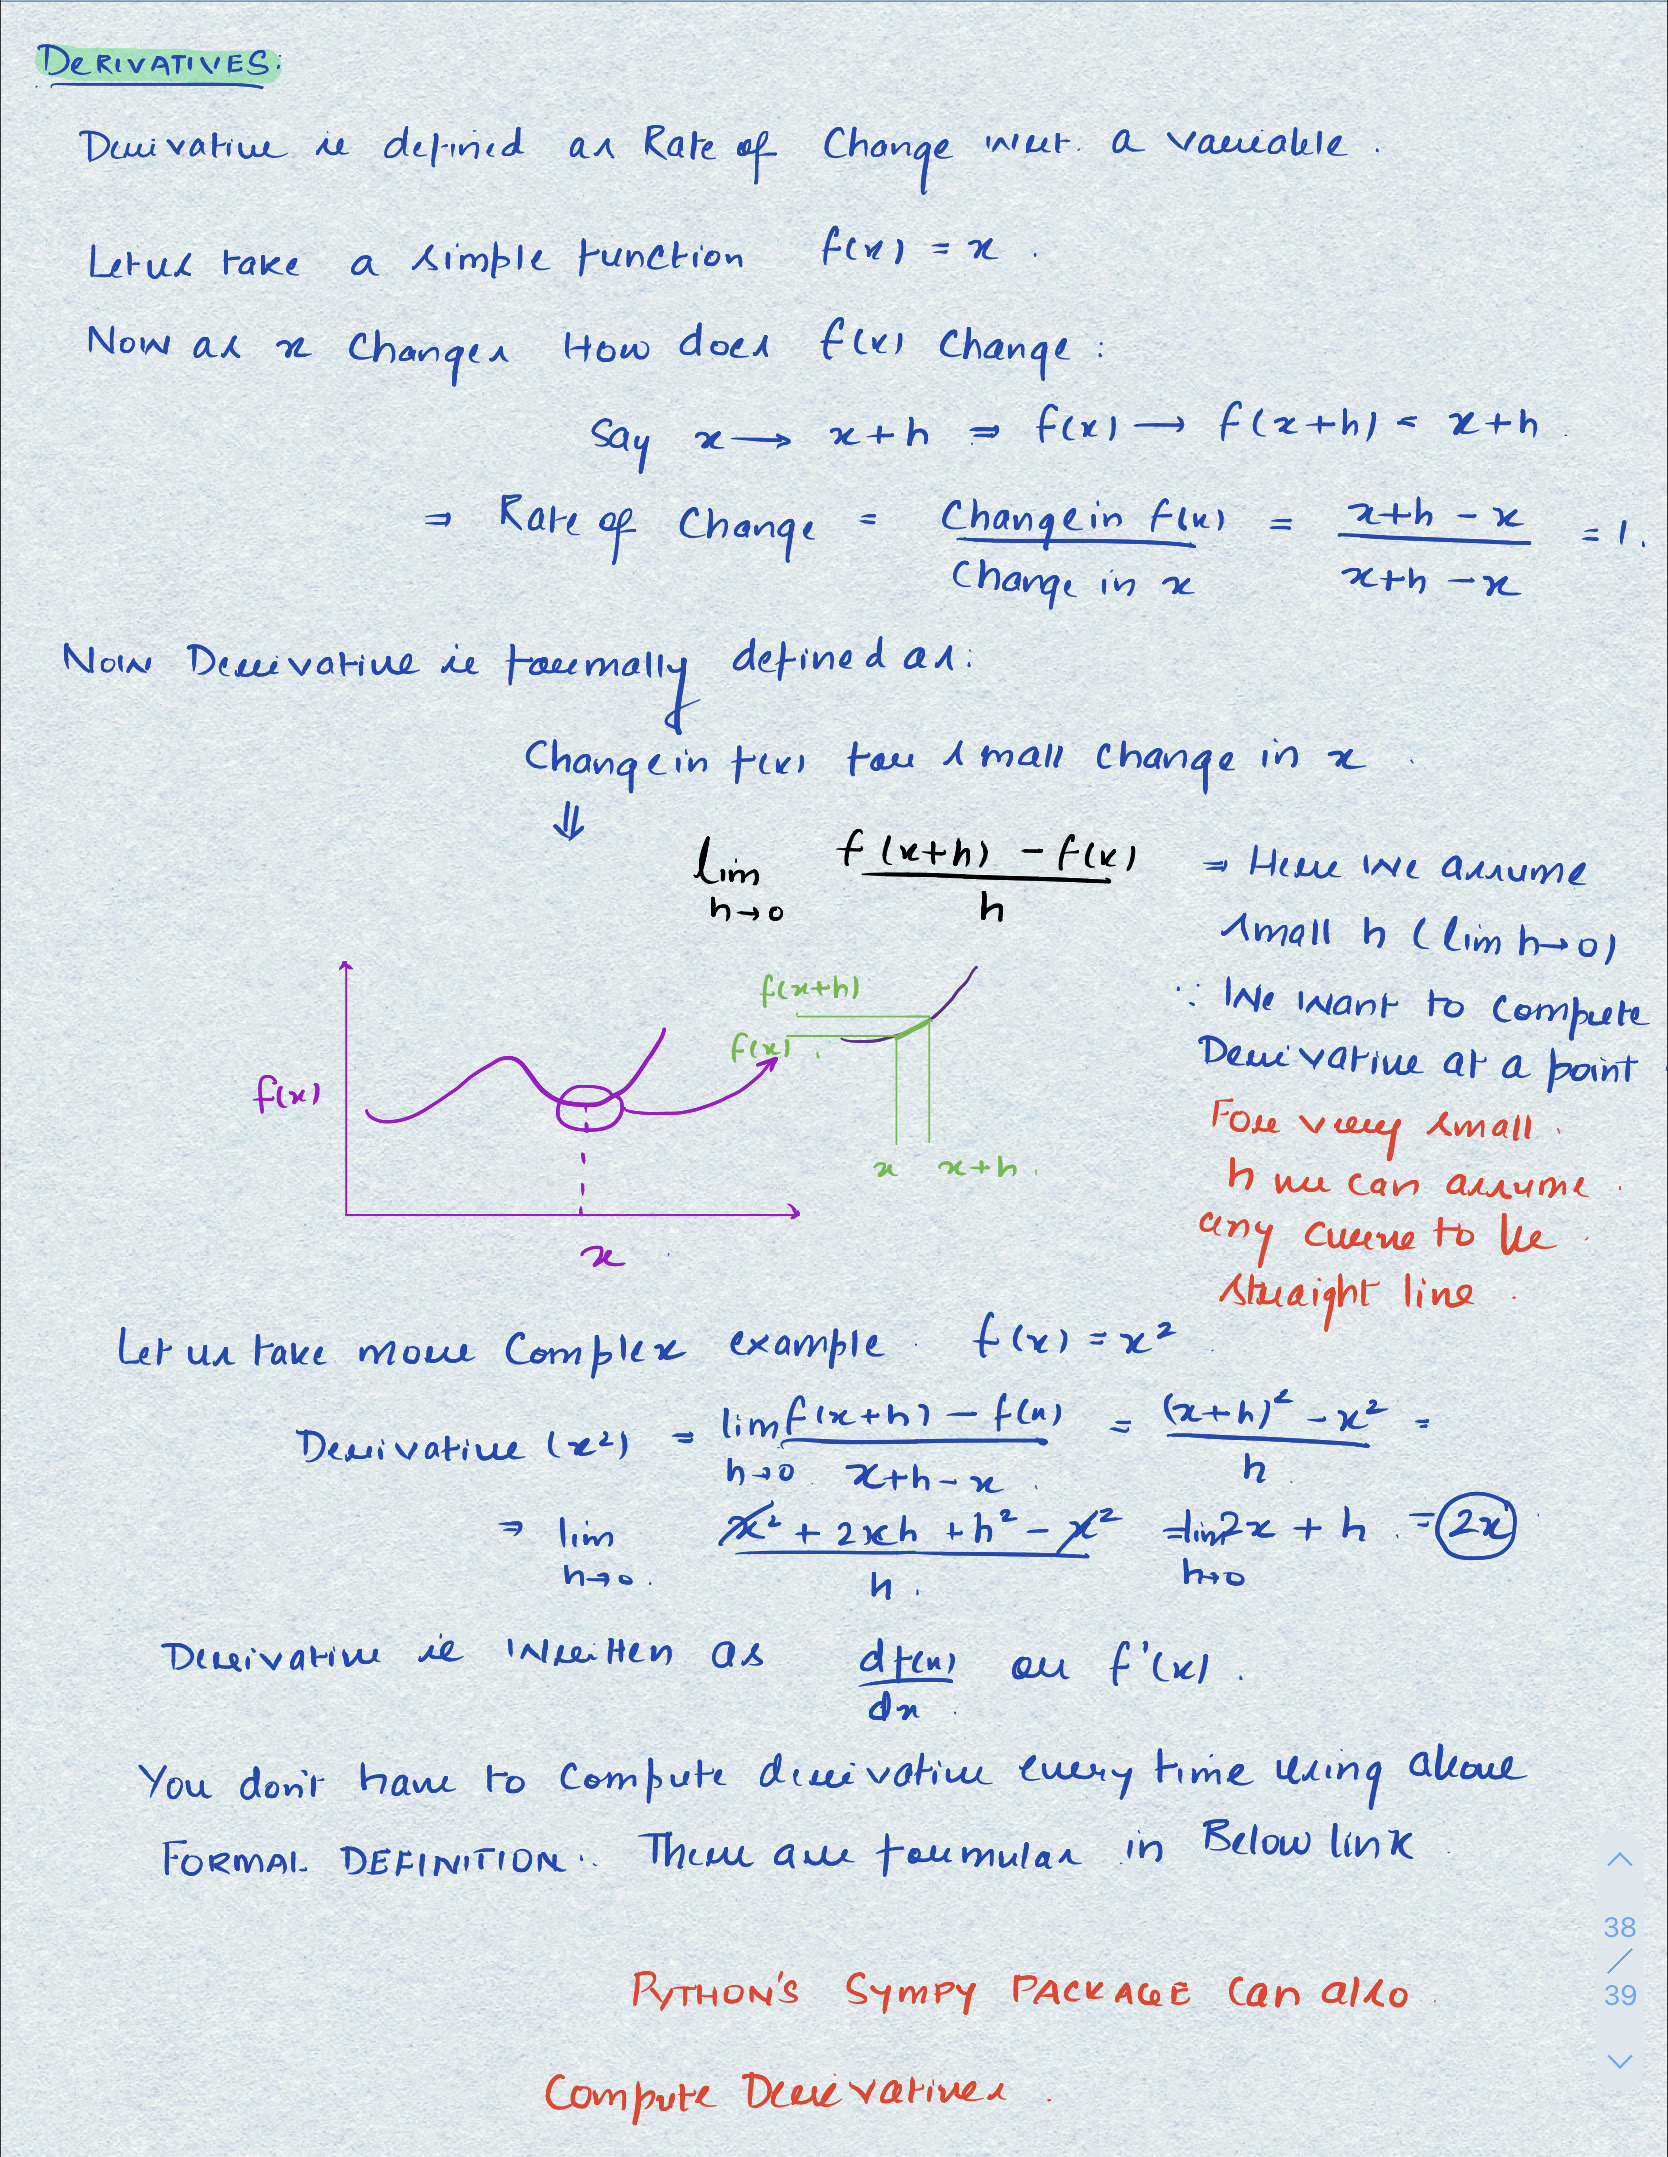 DERIVATIVES:
Derivative is defined as Rate of Change w.r.t. a variable.
Let us take a simple function f(x) = x.
Now as x changes How does f(x) change:
Say x → x+h ⇒ f(x) → f(x+h) = x+h
⇒ Rate of Change = Change in f(x) / Change in x = x+h - x / x+h - x = 1.
Now Derivative is formally defined as:
Change in f(x) for small change in x.
⇓
lim h→0 f(x+h) - f(x) / h ⇒ Here we assume
small h (lim h→0)
∵ We want to compute
Derivative at a point.
For very small
h we can assume
any curve to be
straight line.
f(x)
x
f(x+h)
f(x)
x x+h
Let us take more complex example. f(x) = x²
Derivative (x²) = lim h→0 f(x+h) - f(x) / x+h-x = (x+h)² - x² / h =
⇒ lim h→0 x² + 2xh + h² - x² / h = lim h→0 2x + h = 2x
Derivative is written as df(x)/dx or f'(x).
You don't have to compute derivative every time using above
FORMAL DEFINITION. There are formulas in Below link.
PYTHON'S SYMPY PACKAGE can also
Compute Derivatives.
38
/
39